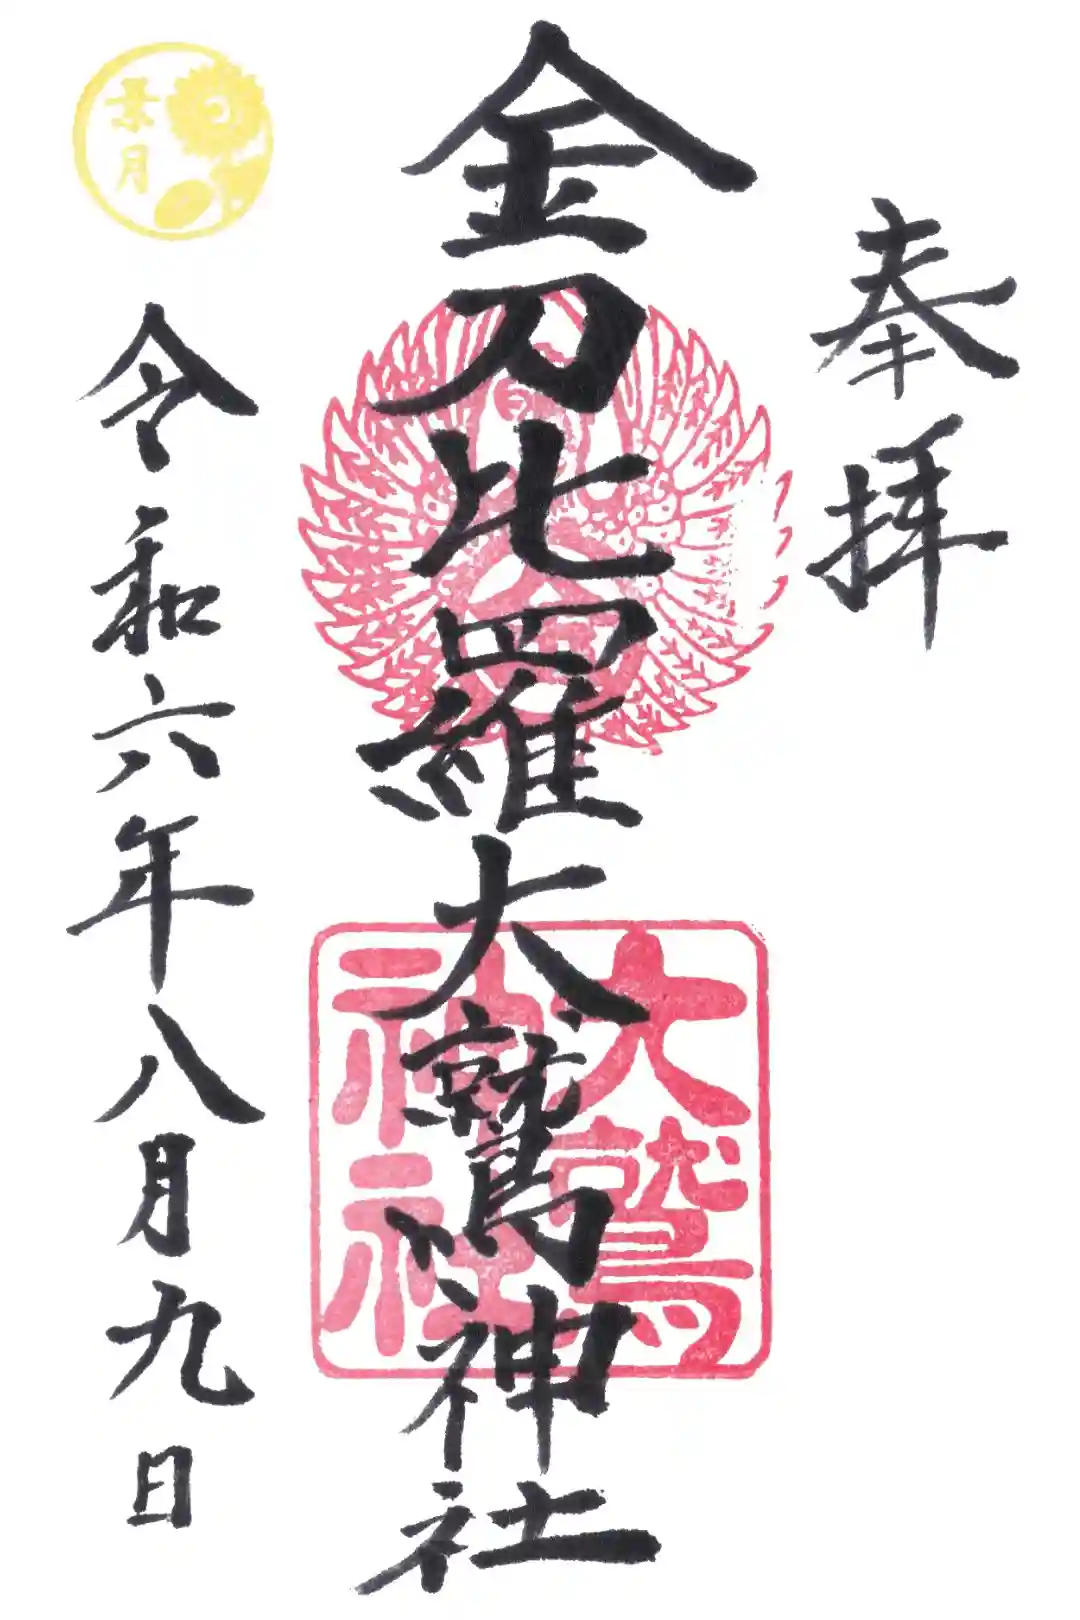 奉拝
金刀比羅大鷲神社
大鷲
神社
葉月
令和六年八月九日